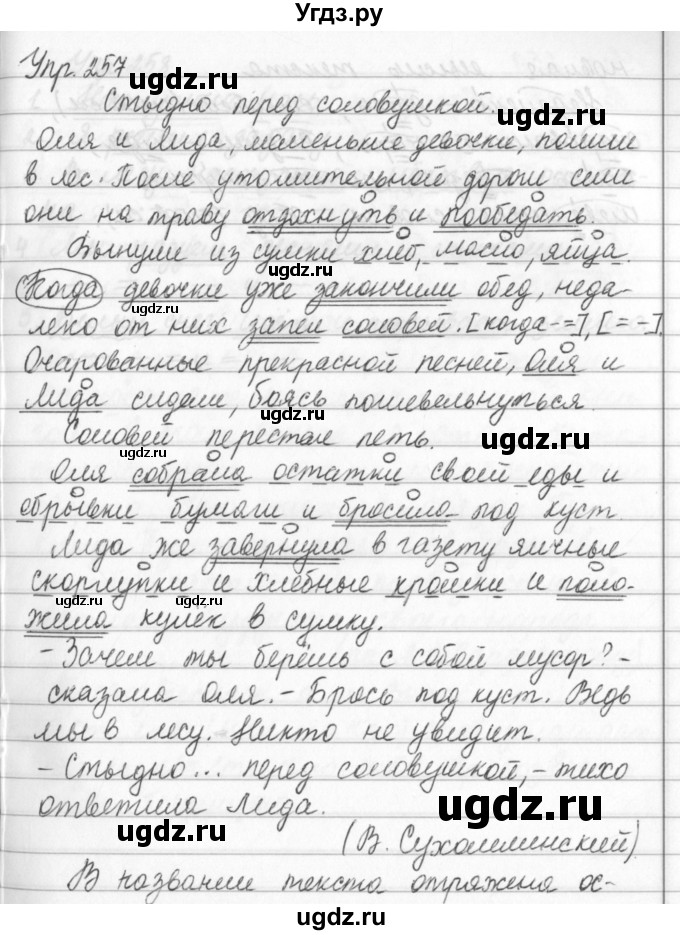 Угдз.ру
Упр. 257
Стыдно перед соловушкой.
Оля и Лида, маленькие девочки, пошли
в лес. После утомительной дороги сели
они на траву отдохнуть и пообедать.
Вынули из сумки хлеб, масло, яйца.
Когда девочки уже закончили обед, неда-
леко от них запел соловей. [когда - =], [= -].
Очарованные прекрасной песней, Оля и
Лида сидели, боясь пошевельнуться.
Соловей перестал петь.
Оля собрала остатки своей еды и
обрывки бумаги и бросила под куст.
Лида же завернула в газету яичные
скорлупки и хлебные крошки и поло-
жила кулёк в сумку.
- Зачем ты берёшь с собой мусор? -
сказала Оля. - Брось под куст. Ведь
мы в лесу. Никто не увидит.
- Стыдно... перед соловушкой, - тихо
ответила Лида.
(В. Сухомлинский)
В названии текста отражена ос-
ugdz.ru